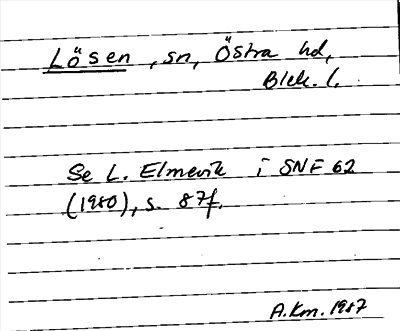 Lösen, sn, Östra hd,
Blek. l.
Se L. Elmevik i SNF 62
(1980), s. 87f.
A.Km. 1987